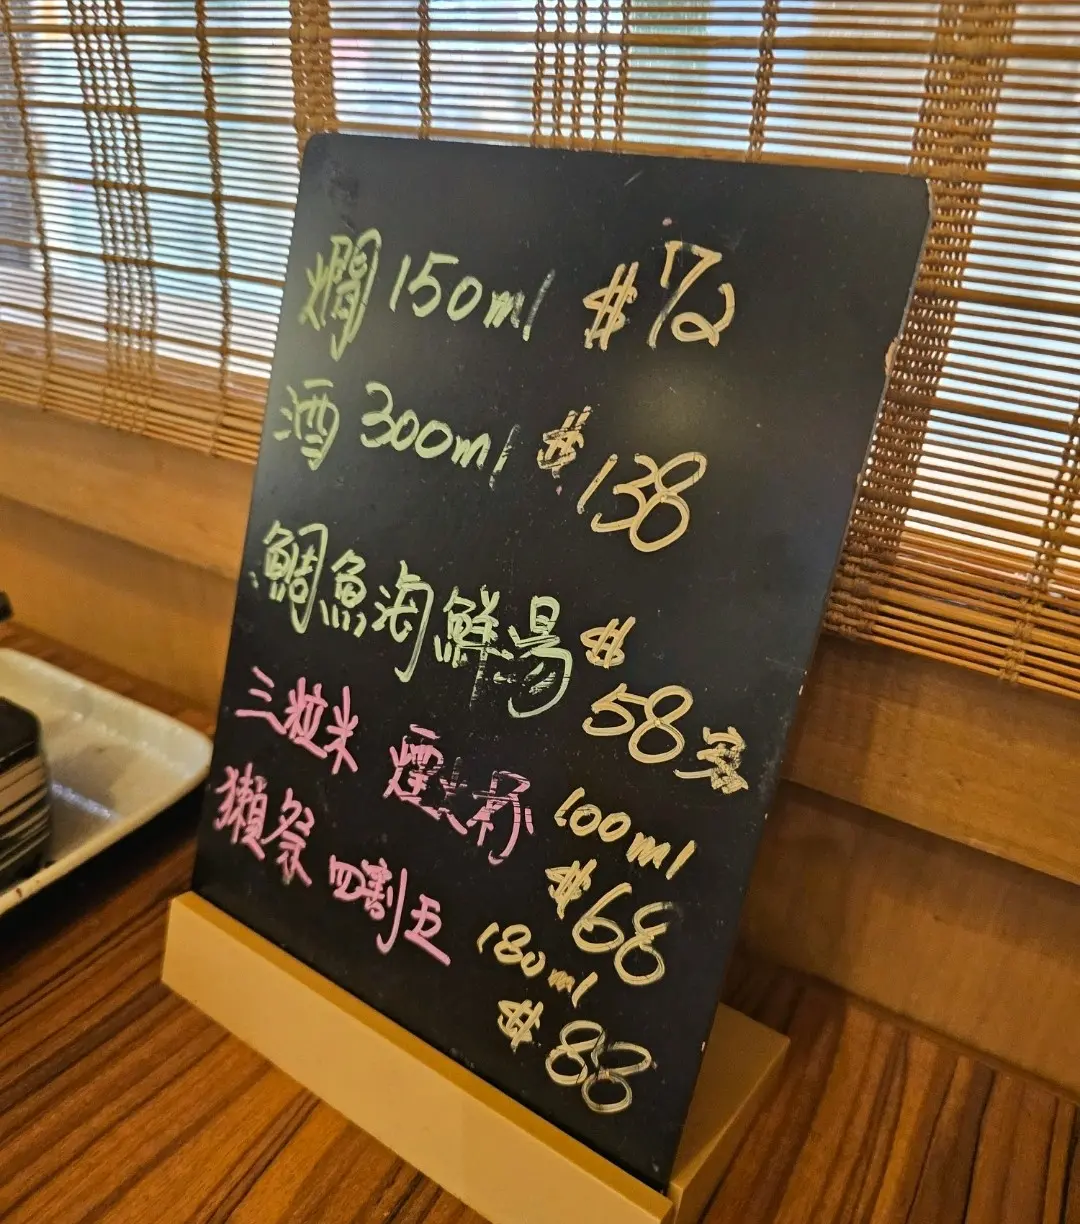 燗 150ml $72
酒 300ml $138
鯛魚海鮮湯 $
58
三粒米 煙火杯 100ml
$68
獺祭 四割五 180ml
$88